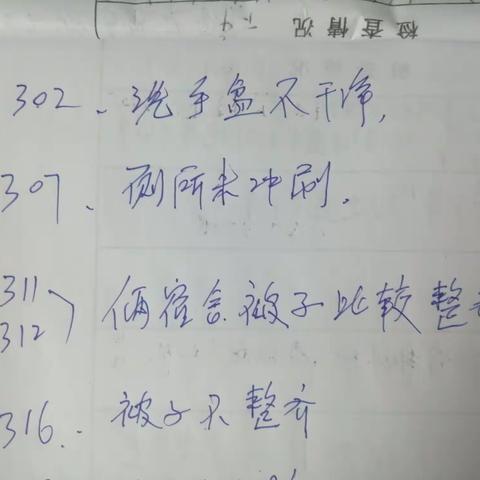 检查情况
302、洗手盆不干净,
307、厕所未冲刷.
311
312 俩宿舍被子比较整
316、被子不整齐